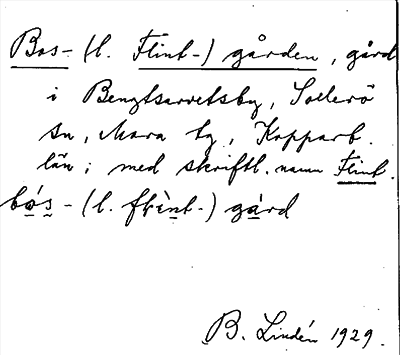 Bos- (l. Flint-) gården, gård
i Bengtsarvetsby, Sollerö
sn, Mora tg, Kopparb.
län; med skriftl. namn Flint.
bós- (l. flint-) gård
B. Lindén 1929.